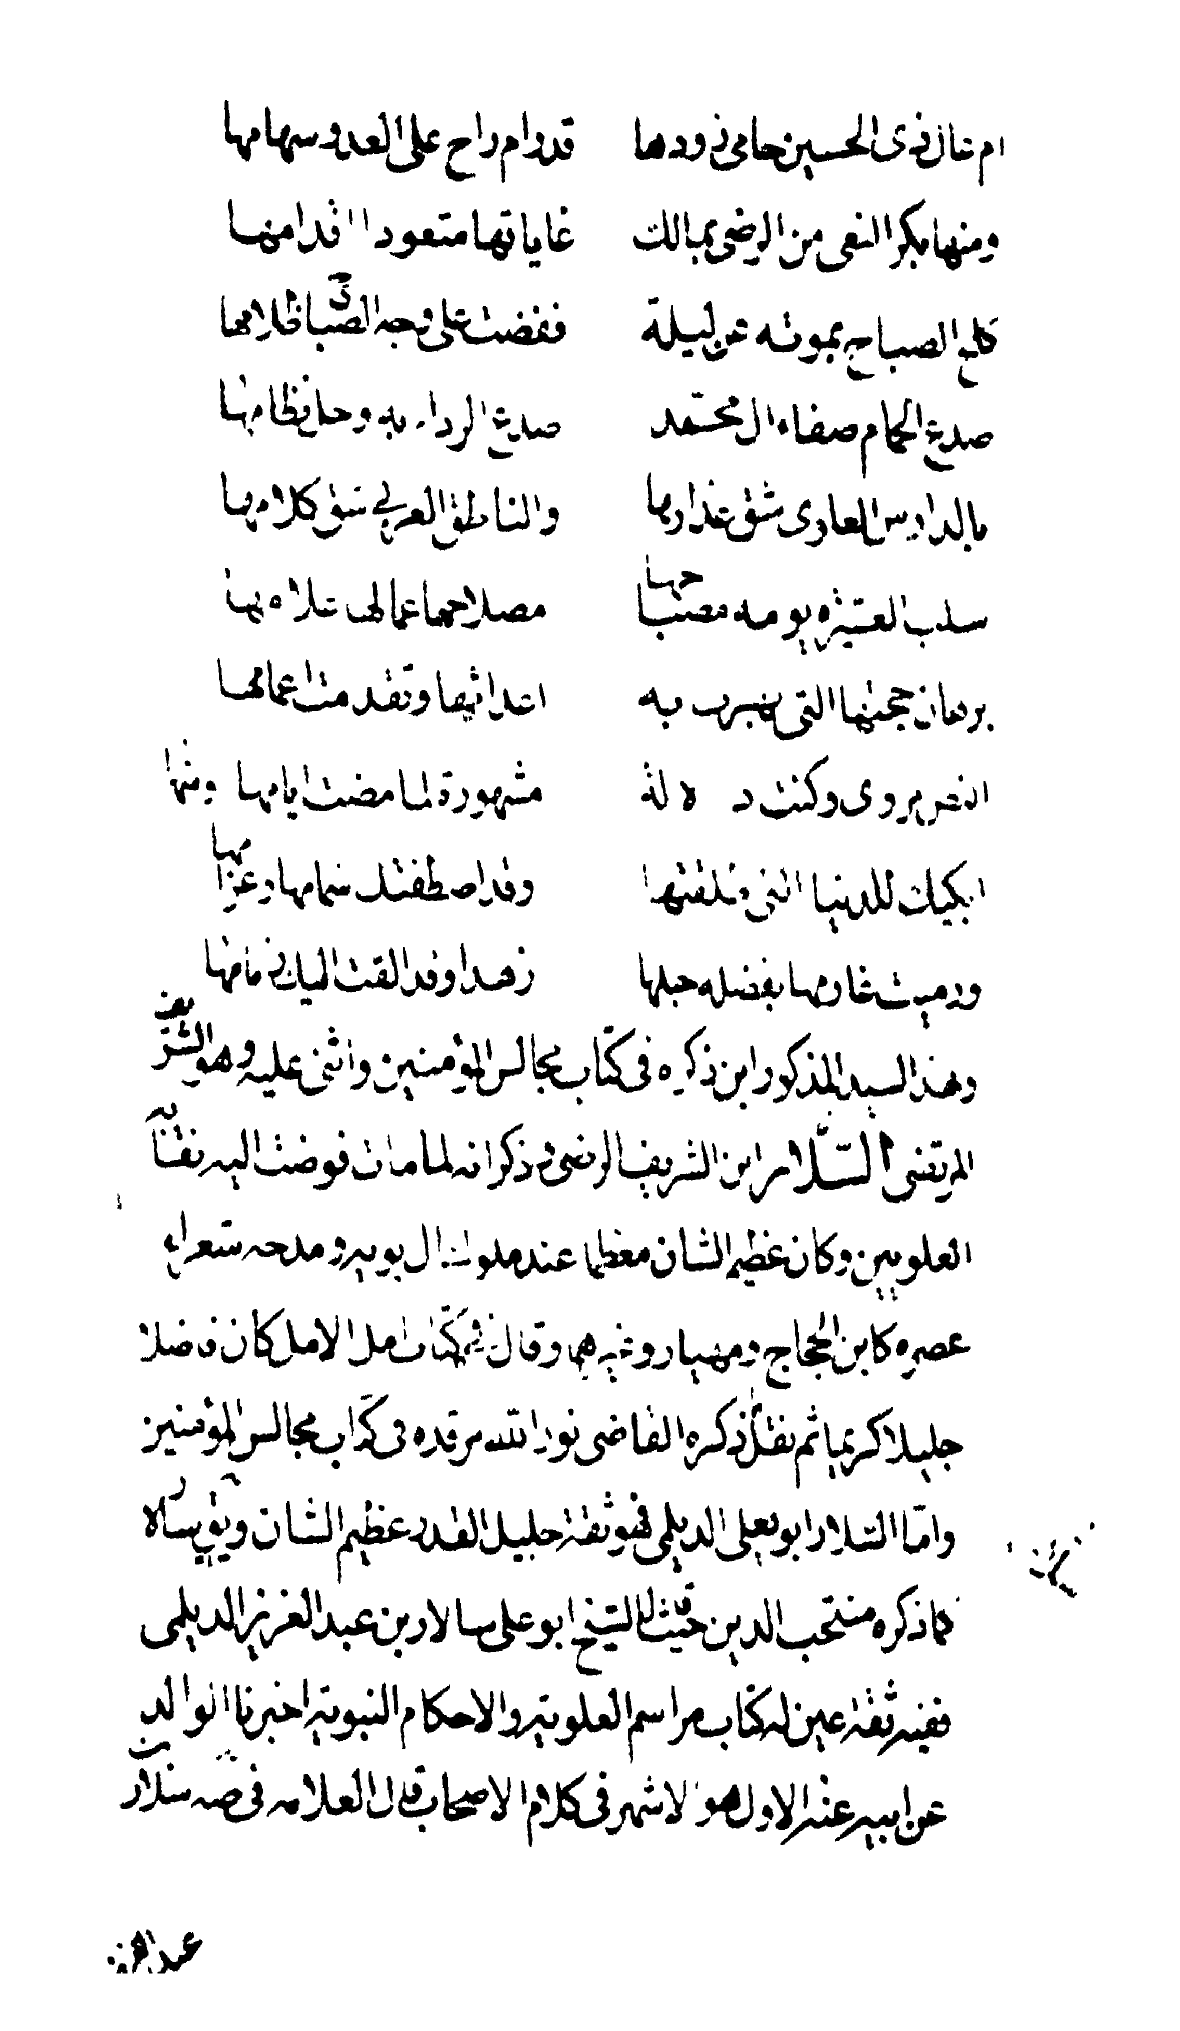 ام غال ذى الحسين حامى ذودها قدوام راح على العدو سهامها
ومنها بكر النعى من الرضى بمالك غاياتها متعودا اقدامها
كلح الصباح بموته عن ليلة نفضت على وجه الصباح ظلامها
صدع الحمام صفاة ال محمد صدع الرداء به وحل نظامها
بالدارس العادى شق غذاربها والناطق العربي شق كلامها
سلب العشيرة يومه مصباحها مصلاحها عمالها علامها
برهان حجتها التى بهرت به اعدائها وتقدمت اعمامها
النص مروى وكنت دلالة مشهورة لما مضت ايامها ومنها
ابكيك للدنيا التى طلقتها وقد اصطفتك شبابها وعرامها
ورميت غاربها بفضله حبلها زهدا وقد القت اليك زمامها
وهذا السيد المذكور ابن ذكره فى كتاب مجالس المؤمنين واثنى عليه وهو الشريف
المرتضى السلام ابن الشريف الرضى وذكر انه لما مات فوضت اليه نقابة
العلويين وكان عظيم الشان معظما عند ملوك ال بويه ومدحه شعراء
عصره كابن الحجاج ومهيار وغيرهما وقال فى كتاب امل الامل كان فاضلا
جليلا كريما ثم نقل ذكره القاضى نور الله مرقده فى كتاب مجالس المؤمنين
وامّا السّلار ابو يعلى الديلمى فهو ثقة جليل القدر عظيم الشان ويق سالار
كما ذكره منتخب الدين حيث قال الشيخ ابو على سالار بن عبد العزيز الديلمى
فقيه ثقة عين له كتاب مراسم العلوية والاحكام النبوية اخبرنا الوالد
عن ابيه عنه الاول هو الاشهر فى كلام الاصحاب قال العلامه فى صه سلار بن
عبد العزيز